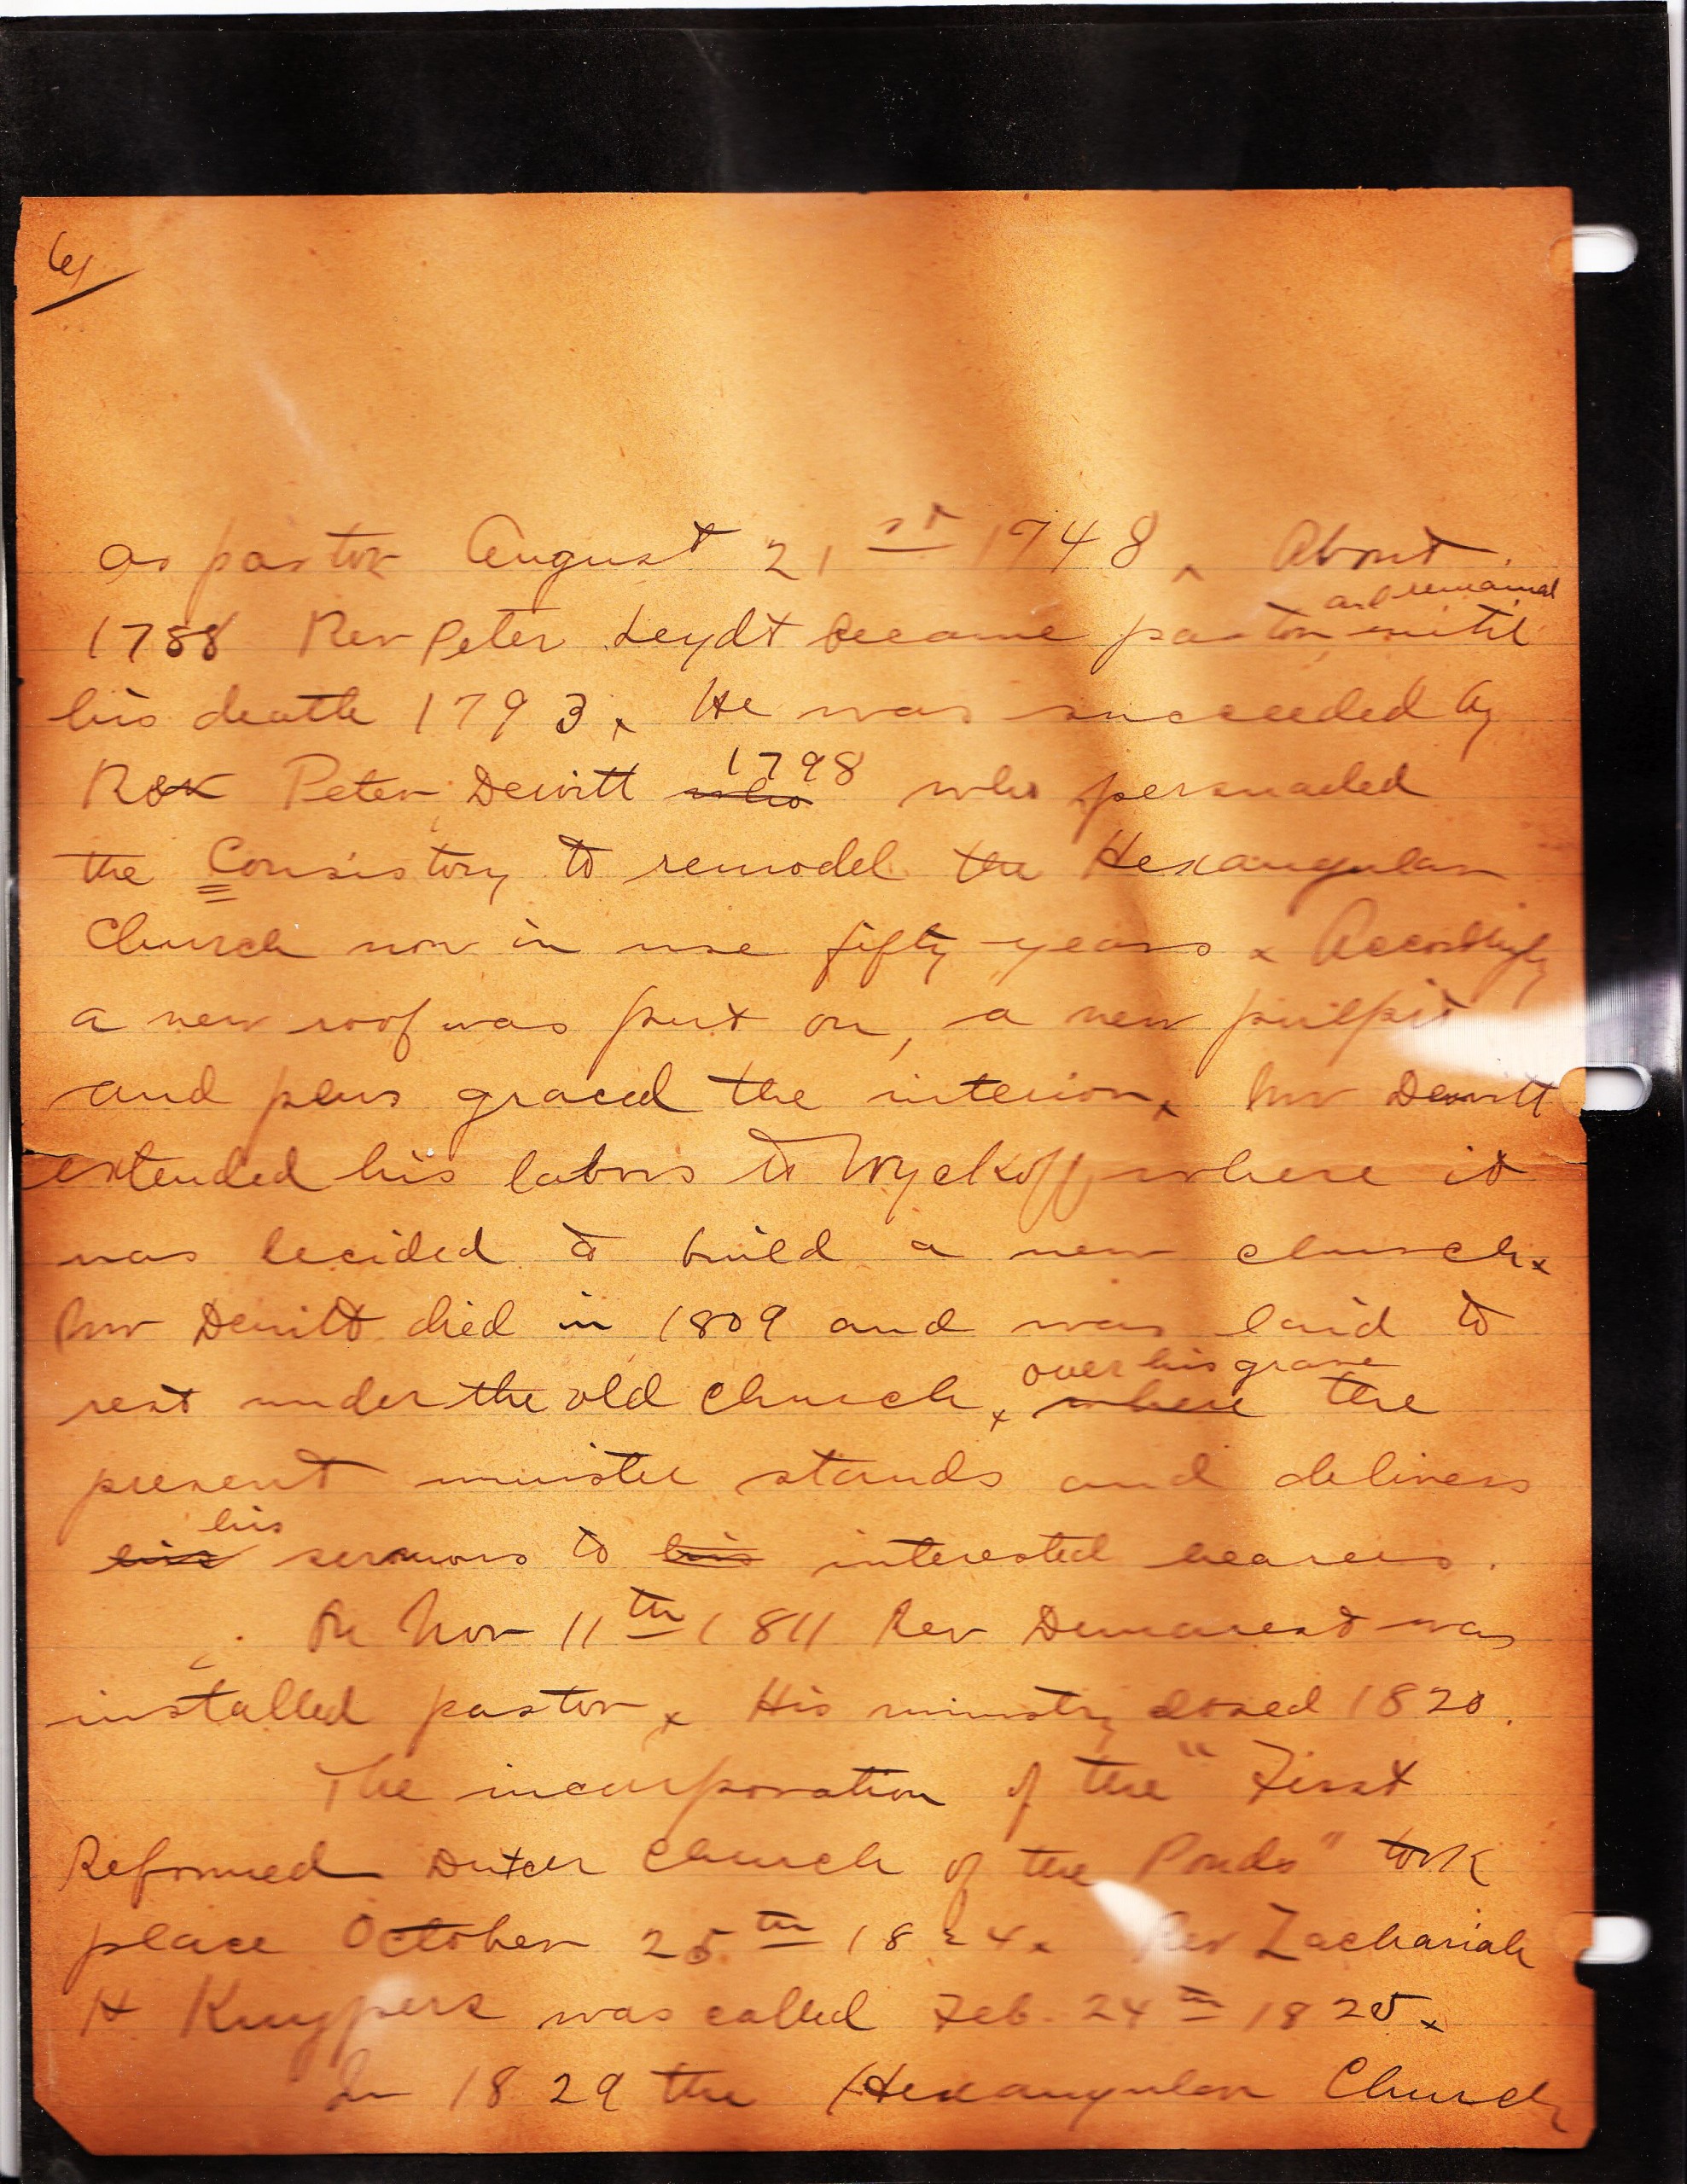 6/
as pastor August 21st 1748x About
1788 Rev Peter Leydt became pastor and remained until
his death 1793x He was succeeded by
Rev Peter Dewitt who 1798 who persuaded
the Consistory to remodel the Hexangular
Church now in use fifty years x Accordingly
a new roof was put on, a new pulpit
and pews graced the interiorx Mr Dewitt
extended his labors to Wyckoff where it
was decided to build a new churchx
Mr Dewitt died in 1809 and was laid to
rest under the old churchx where over his grave the
present minister stands and delivers
his sermons to his interested hearers.
On Nov 11th 1811 Rev Demarest was
installed pastorx His ministry closed 1820.
The incorporation of the "First
Reformed Dutch Church of the Ponds" took
place October 25th 1824x Rev Zachariah
H Kuypers was called Feb. 24th 1825x
In 1829 the Hexangular Church